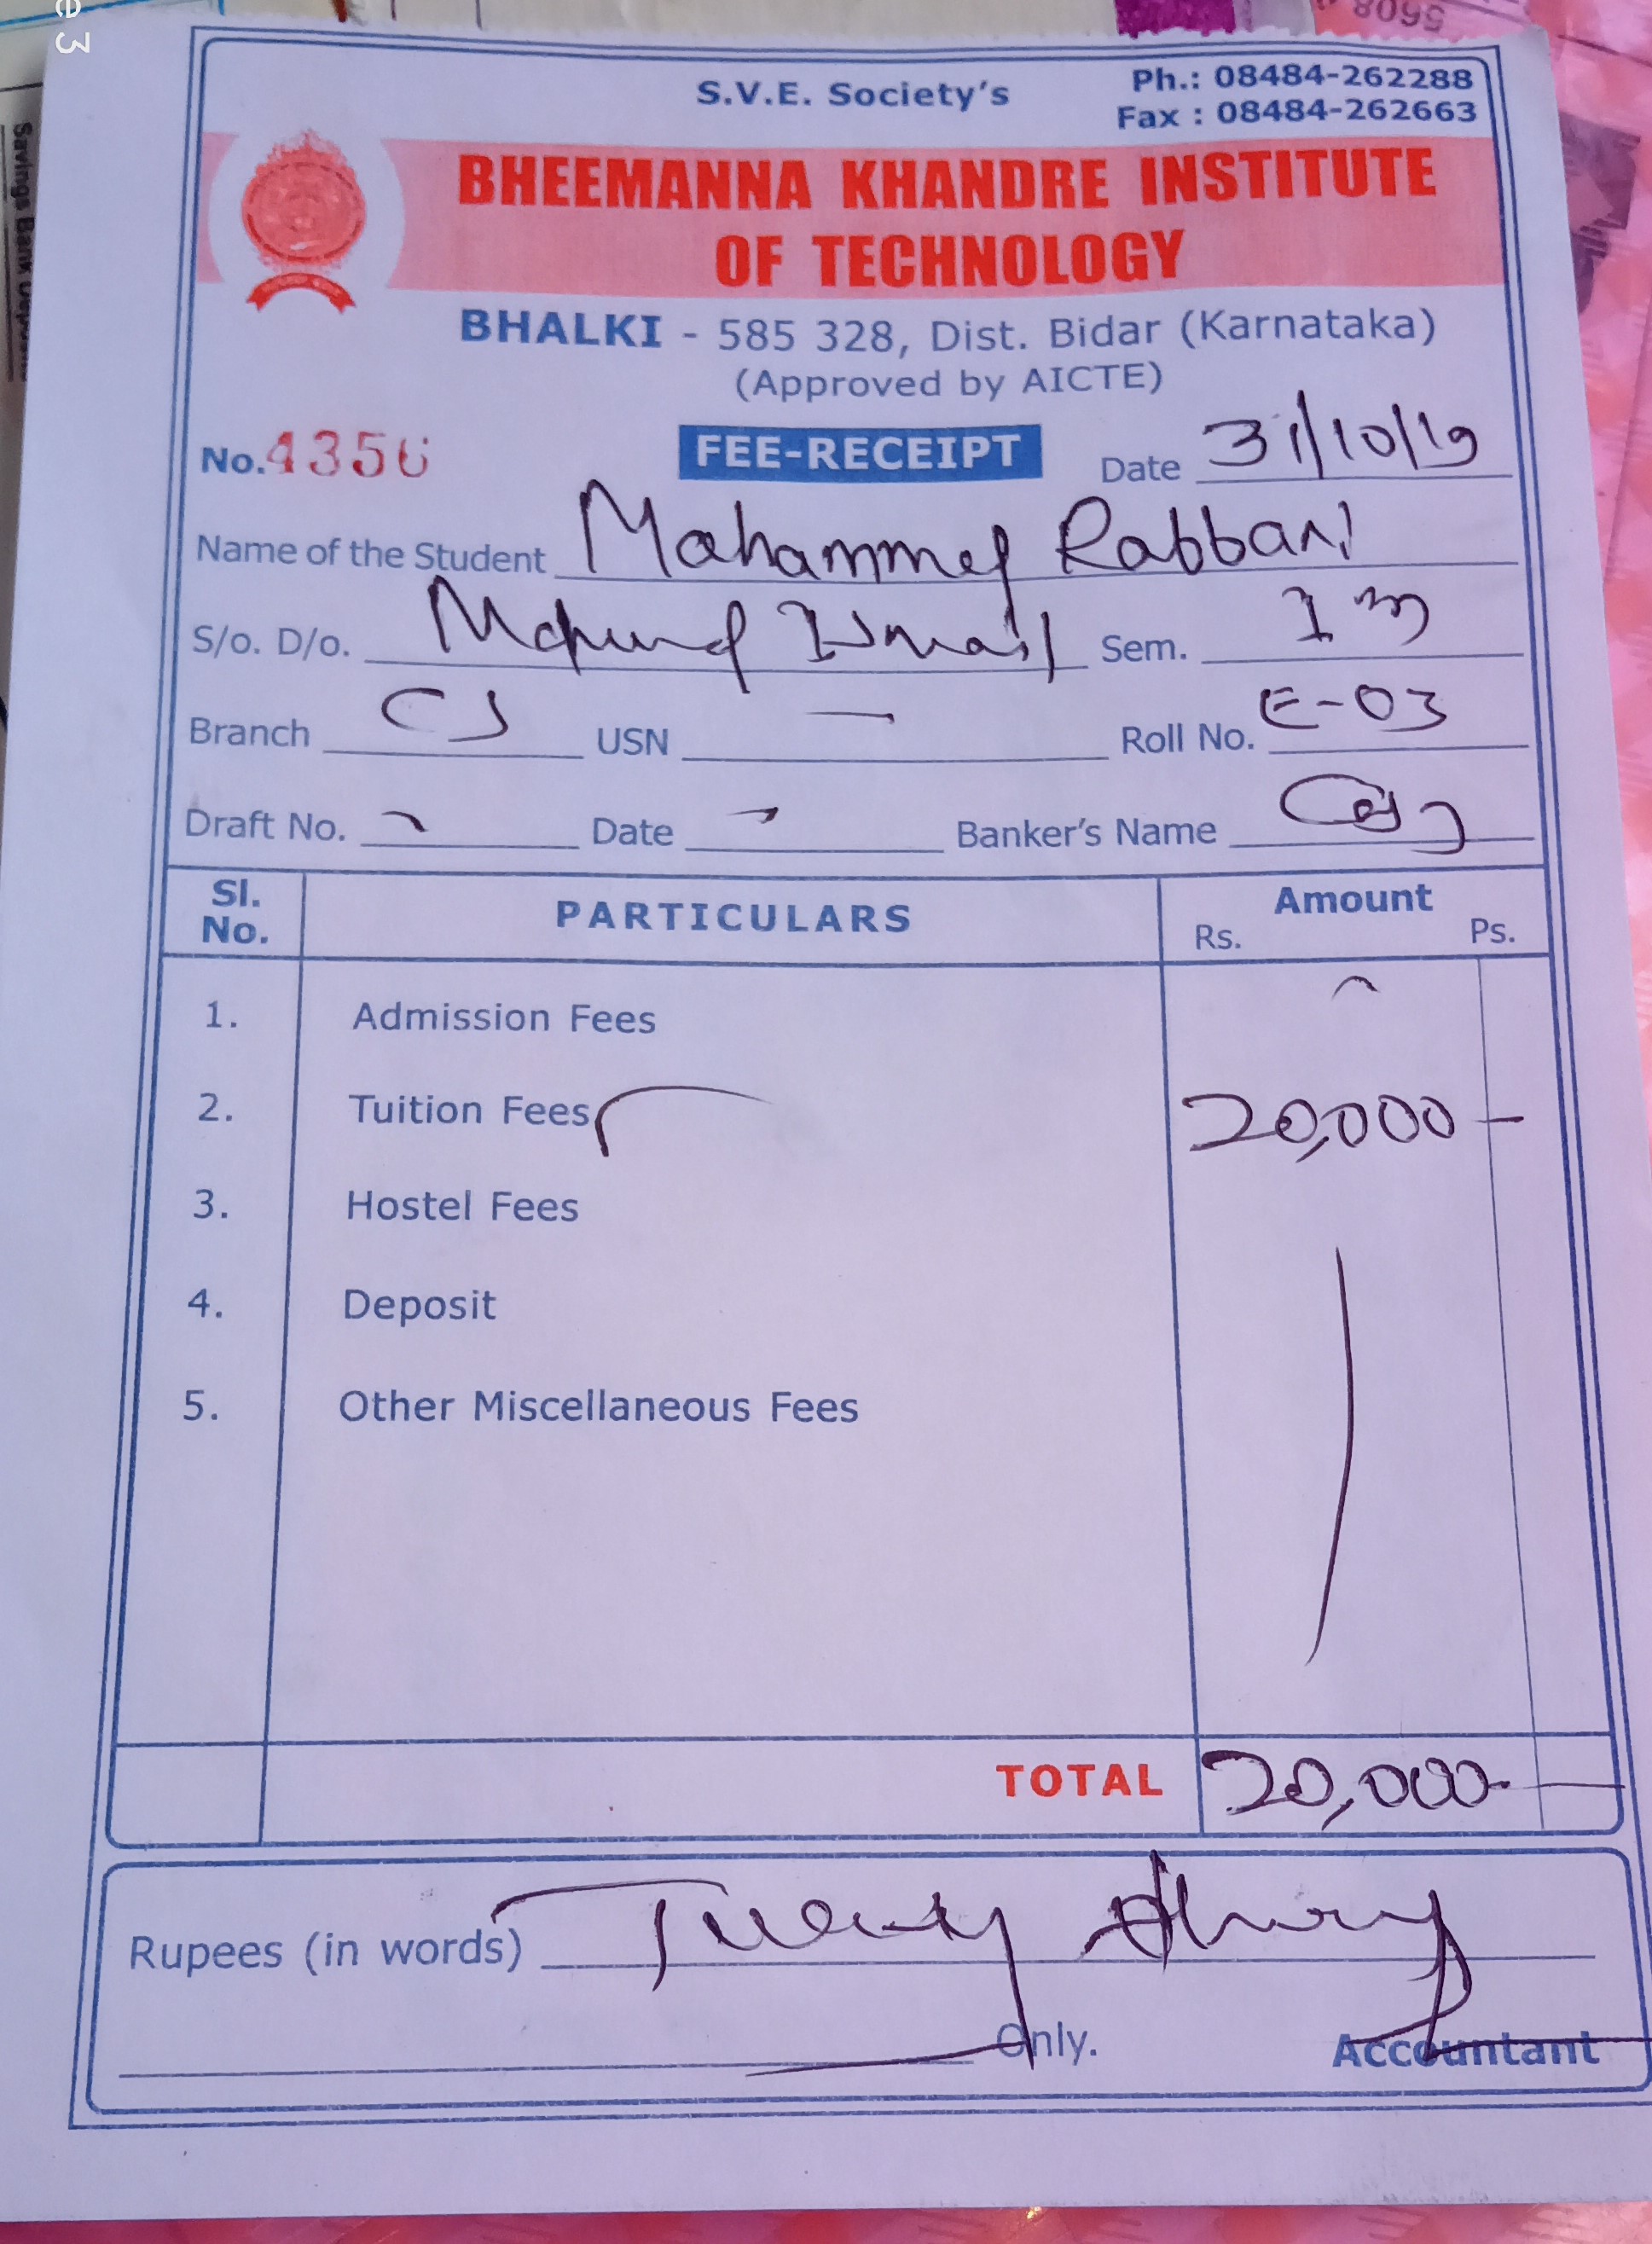 S.V.E. Society's
Ph.: 08484-262288
Fax : 08484-262663
BHEEMANNA KHANDRE INSTITUTE
OF TECHNOLOGY
BHALKI - 585 328, Dist. Bidar (Karnataka)
(Approved by AICTE)
No. 4356 FEE-RECEIPT Date 31/10/19
Name of the Student Mohammed Rabbani
S/o. D/o. Ismail Sem. I
Branch CS USN — Roll No. E-03
Draft No. - Date - Banker's Name Cash
Sl. No. PARTICULARS Amount Rs. Ps.
1. Admission Fees -
2. Tuition Fees 20,000 -
3. Hostel Fees
4. Deposit
5. Other Miscellaneous Fees
TOTAL 20,000 -
Rupees (in words) Twenty
Only. Accountant
Savings Bank